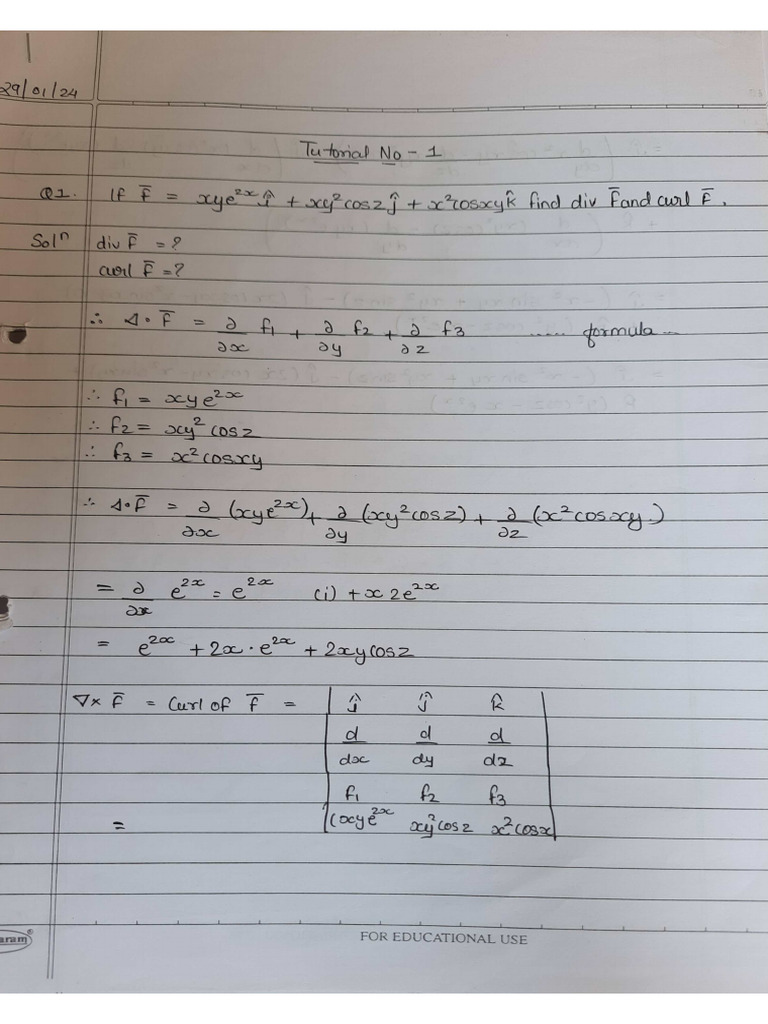 29/01/24
Tutorial No - 1
Q1. If F̄ = xye²ˣ ĵ + xy² cosz ĵ + x² cosxy k̂ find div F̄ and curl F̄.
Solⁿ div F̄ = ?
curl F̄ = ?
∴ ∆ • F̄ = ∂/∂x f₁ + ∂/∂y f₂ + ∂/∂z f₃ ...... formula ...
∴ f₁ = xye²ˣ
∴ f₂ = xy² cosz
∴ f₃ = x² cosxy
∴ ∆ • F̄ = ∂/∂x (xye²ˣ) + ∂/∂y (xy² cosz) + ∂/∂z (x² cosxy)
= ∂/∂x e²ˣ = e²ˣ (i) + x 2e²ˣ
= e²ˣ + 2x · e²ˣ + 2xy cosz
∇ × F̄ = Curl of F̄ = | ĵ ĵ k̂ |
d/dx d/dy d/dz
f₁ f₂ f₃
= (xye²ˣ xy² cosz x² cosx
aram®
FOR EDUCATIONAL USE